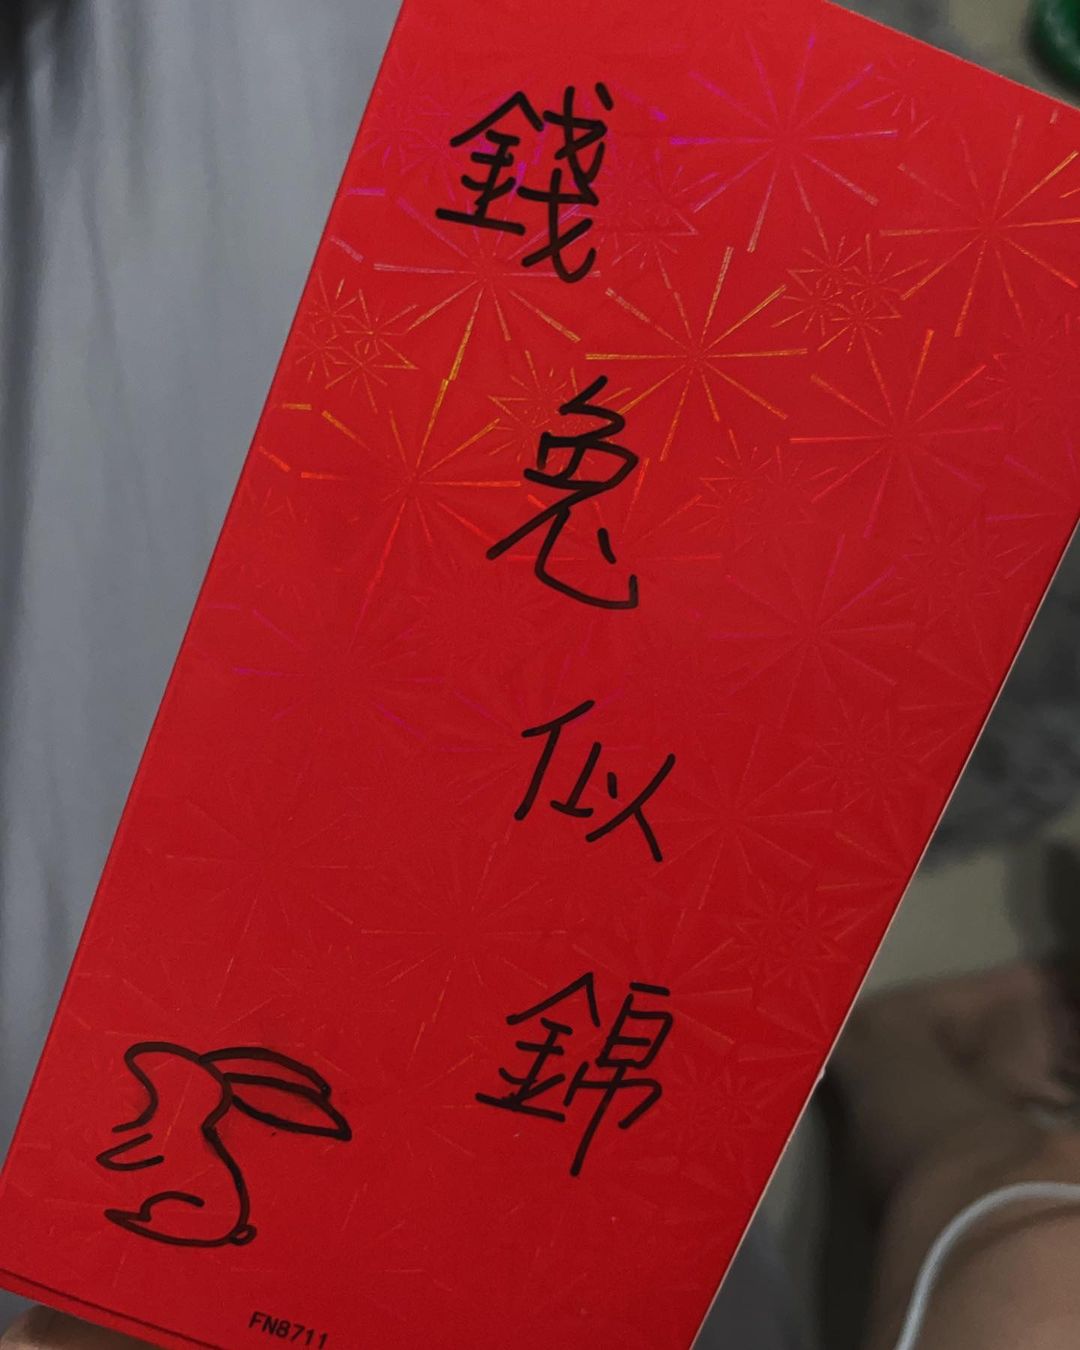 錢兔似錦
FN8711